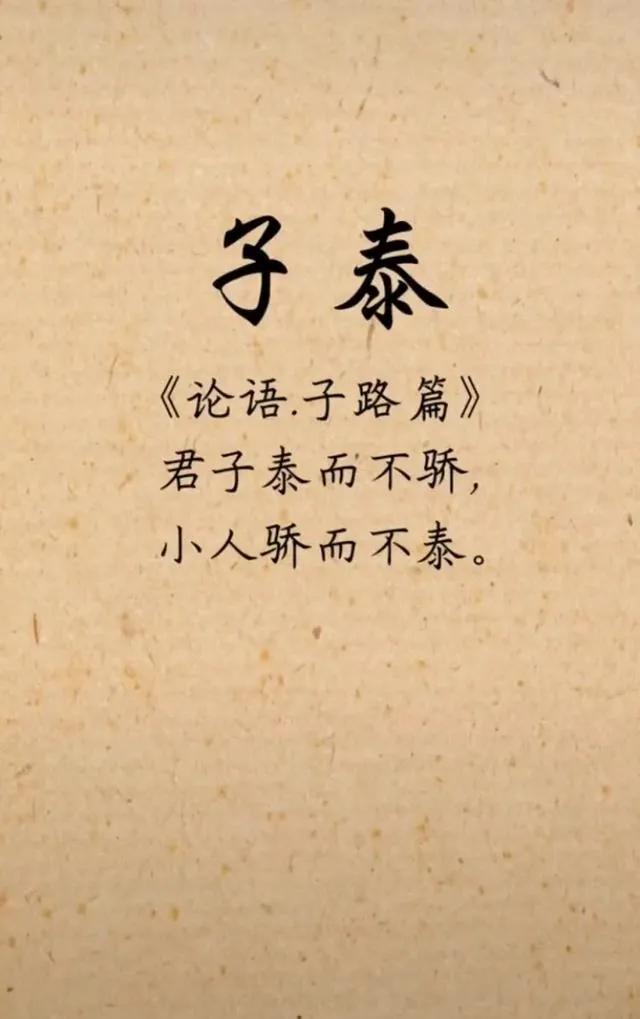 子泰
《论语.子路篇》
君子泰而不骄,
小人骄而不泰。